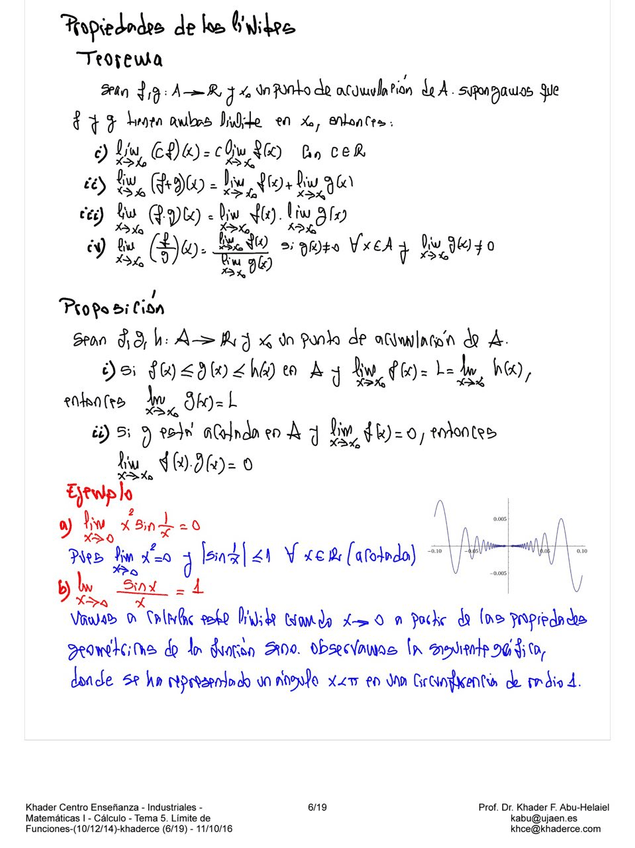 Propiedades de los límites
Teorema
Sean f,g: A→R y x₀ un punto de acumulación de A. supongamos que
f y g tienen ambas límite en x₀, entonces:
i) lim x→x₀ (cf)(x) = c lim x→x₀ f(x) Con c∈R
ii) lim x→x₀ (f+g)(x) = lim x→x₀ f(x) + lim x→x₀ g(x)
iii) lim x→x₀ (f·g)(x) = lim x→x₀ f(x) . lim x→x₀ g(x)
iv) lim x→x₀ (f/g)(x) = lim x→x₀ f(x) / lim x→x₀ g(x) si g(x)≠0 ∀x∈A y lim x→x₀ g(x)≠0
Proposición
Sean f,g,h: A→R y x₀ un punto de acumulación de A.
i) Si f(x) ≤ g(x) ≤ h(x) en A y lim x→x₀ f(x) = L = lim x→x₀ h(x),
entonces lim x→x₀ g(x) = L
ii) Si g está acotada en A y lim x→x₀ f(x) = 0, entonces
lim x→x₀ f(x).g(x) = 0
Ejemplo
a) lim x→0 x² sin 1/x = 0
Pues lim x→0 x²=0 y |sin 1/x| ≤ 1 ∀ x∈R (acotada)
0.005
-0.10 -0.05 0.05 0.10
-0.005
b) lim x→0 sin x / x = 1
Vamos a calcular este límite cuando x→0 a partir de las propiedades
geométricas de la función seno. Observamos la siguiente gráfica,
donde se ha representado un ángulo x<π en una circunferencia de radio 1.
Khader Centro Enseñanza - Industriales -
Matemáticas I - Cálculo - Tema 5. Límite de
Funciones-(10/12/14)-khaderce (6/19) - 11/10/16
6/19
Prof. Dr. Khader F. Abu-Helaiel
kabu@ujaen.es
khce@khaderce.com